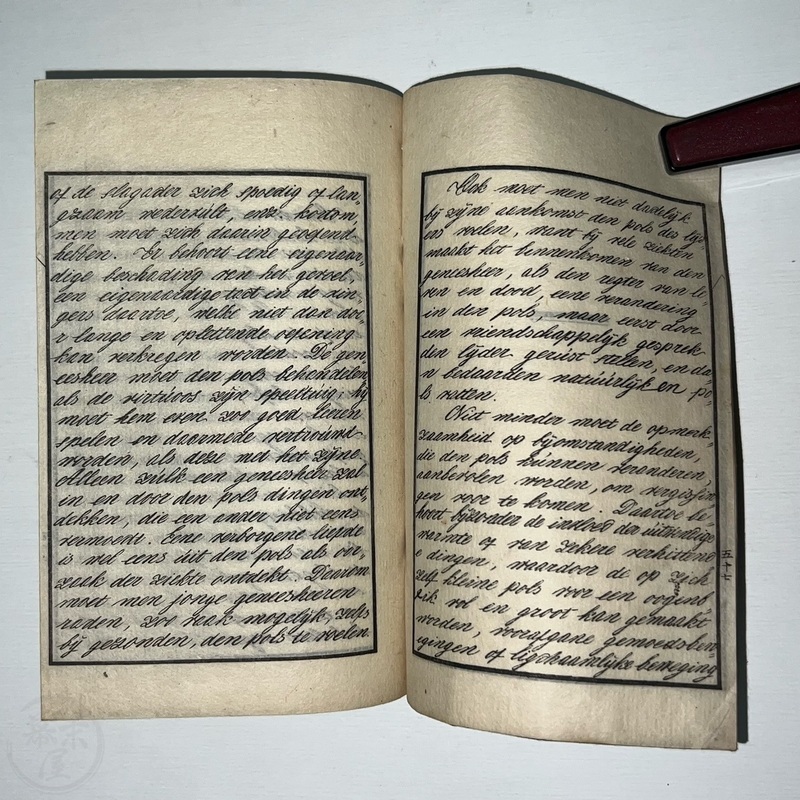 of de slagader zich spoedig of lan„
gzaam nederzilt, enz. kortom,
men moet zich daarin geoefend
hebben. Er behoort eene eigenaar„
dige beschading van het gevoel,
een eigenaardige tact in de vin„
gers daartoe, welke niet dan doo„
r lange en oplettende oefening
kan verkregen worden. De gen„
eesheer moet den pols behandelen,
als de virtúoos zijn speeltuig; hij
moet hem even zoo goed leeren
spelen en daarmede vertrouwd
worden, als deze met het zijne
Alleen zulk een geneesheer zal
in en door den pols dingen ont„
dekken, die een ander niet eens
vermoedt. Eene verborgene liefde
is wel eens uit den pols als oor„
zaak der ziekte ontdekt. Daarom
moet men jonge geneesheeren
raden, zoo vaak mogelijk, zelfs
bij gezonden, den pols te voelen.
Ook moet men niet dadelijk
bij zijne aankomst den pols des lijd„
ers voelen, want bij vele ziekten
maakt het binnenkomen van den
geneesheer, als den regter van le„
ven en dood, eene verandering
in den pols, maar eerst door
een vriendschappelijk gesprek
den lijder gerúst stellen, en da„
n bedaarden natuúrlijken po„
ls vatten.
Niet minder moet de opmerk„
zaamheid op bijomstandigheden,
die den pols kúnnen veranderen,
aanbevolen worden, om vergissin„
gen voor te komen. Daartoe be„
hoort bijzonder de invloed der uitwendige
warmte of van zekere verhittend„
e dingen, waardoor de op zich
zelf kleine pols voor een oogenb„
lik vol en groot kan gemaakt
worden, voorafgane gemoedsbew„
egingen of ligchaamlijke beweging
五十七